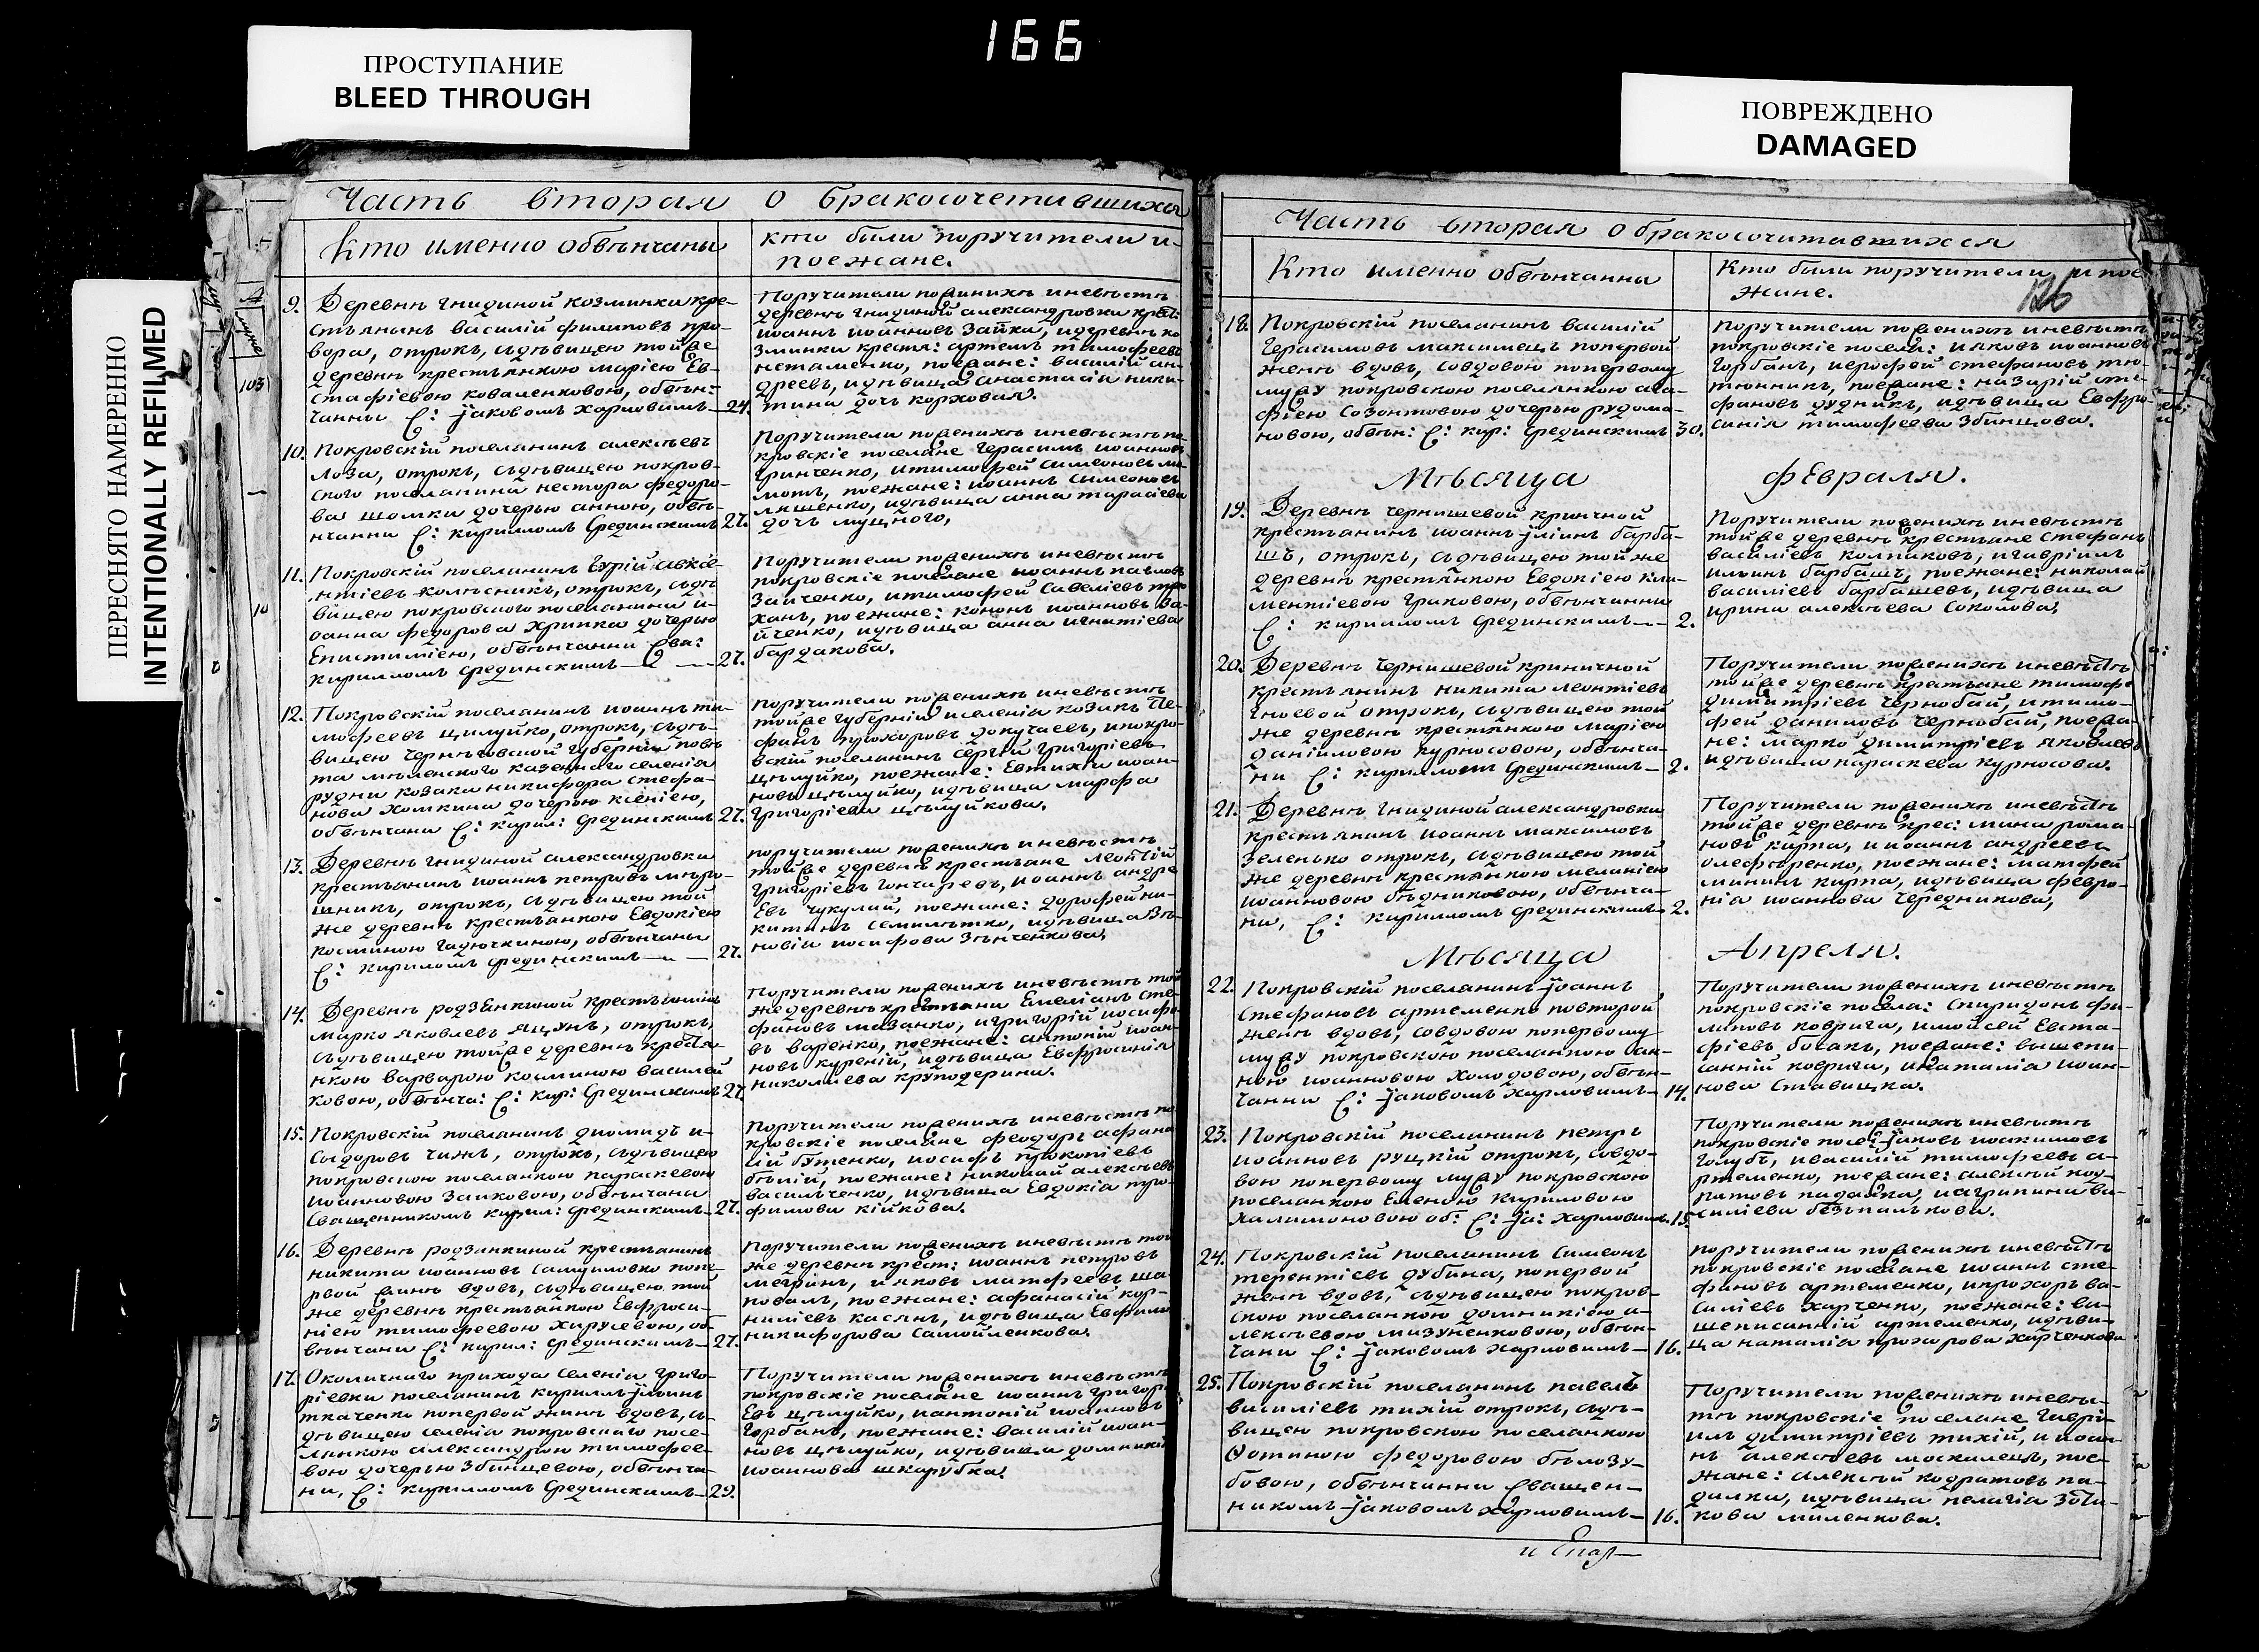 166
ПРОСТУПАНИЕ
BLEED THROUGH
ПОВРЕЖДЕНО
DAMAGED
ПЕРЕСНЯТО НАМЕРЕННО
INTENTIONALLY REFILMED
Часть вторая о бракосочетавшихся
Кто именно обвѣнчаны
кто были поручители и
поежане.
9. Деревнѣ Гнидиной Козминки кре-
стьянинъ василій филиповъ
вора, отрокъ, съ дѣвицею тойже
деревнѣ крестьянкою маріею Ев-
стафіевою коваленковою, обвѣн:
чанны С: Јаковомъ Харловимъ 24.
Поручители по женихѣ и невѣстѣ
деревнѣ гнидиной александровки крест:
иоаннъ иоанновъ Зайка, и деревнѣ ко
зминки крестя: артемъ тимофеевъ
нестаменко, поежане: василій ан-
дреевъ, и дѣвица анастасія ники-
тина дочь коржовая.
10. Покровскій поселанинъ алексѣевъ
лоза, отрокъ, съ дѣвицею покров-
ского поселанина нестора федоро-
ва шомки дочерью анною, обвѣ-
нчанни С: кириломъ Срединскимъ 27.
Поручители по женихѣ и невѣстѣ по-
кровскіе поселане герасимъ иоанновъ
гринченко, и тимофей симеоновъ
мотъ, поежане: иоаннъ симеоновъ
ляшенко, и дѣвица анна тарасіева
дочь мущного,
11. Покровскій поселанинъ Гурій авксе-
нтіевъ колѣсникъ, отрокъ, съ дѣ
вицею покровского поселанина и-
оанна федорова хрипка дочерью
Епистиміею, обвѣнчанни Сва:
кириломъ Срединскимъ 27.
Поручители по женихѣ и невѣстѣ
покровскіе поселане иоаннъ павловъ
Заиченко, и тимофей Савеліевъ
ханъ, поежане: кононъ иоанновъ За-
йченко, и дѣвица анна игнатіева
бардакова.
12. Покровскій поселанинъ иоаннъ ти-
мофеевъ цилуйко, отрокъ, съ дѣ-
вицею черниговской губерніи повѣ
та мгленского казенного селенія
рудни козака никифора стефа-
нова хомкина дочерью ксеніею,
обвѣнчани С: кирил: Срединскимъ 27.
поручители по женихѣ и невѣстѣ
тойже губерніи и селенія козакъ Сте-
фанъ прохоровъ докучаевъ, и покро-
вскій поселанинъ Сергій григоріевъ
цѣлуйко, поежане: Евтихій иоан-
новъ цѣлуйко, и дѣвица марфа
григоріева цѣлуйкова.
13. Деревнѣ гнидиной александровки
крестьянинъ иоаннъ петровъ миро-
шникъ, отрокъ, съ дѣвицею той
же деревнѣ крестьянкою Евдокіею
косминою гадючкиною, обвѣнчаны
С: кириломъ Срединскимъ 27.
поручители по женихѣ и невѣстѣ
тойже деревнѣ крестьане леонтій
григоріевъ гончаревъ, иоаннъ андре
Евъ чукулий, поежане: дорофей ни-
китинъ Семилѣтко, и дѣвица Зѣ-
новія иосифова Зѣнченкова,
14. Деревнѣ родзѣнкиной крестьянинъ
марко яковлевъ яцунъ, отрокъ,
съ дѣвицею тойже деревнѣ крестя-
нкою варварою косминою василей
ковою, обвѣнча: С: кир: Срединскимъ 27.
Поручители по женихѣ и невѣстѣ той
же деревнѣ крестьяни Емеліанъ сте-
фановъ мазанко, и григорій иосифо-
въ варенко, поежане: антоній иоан-
новъ куреній, и дѣвица Евфросинія
николаева круподерина.
15. Покровскій поселанинъ диомидъ и-
сыдоровъ чижъ, отрокъ, съ дѣвицею
покровскою поселанкою параскевою
иоанновою Заиковою, обвѣнчани
Священникомъ кирил: Срединскимъ 27.
Поручители по женихѣ и невѣстѣ по
кровскіе поселане феодоръ афана
сій бутенко, иосифъ прокопіевъ
бѣлій, поежане: николай алексѣевъ
васильченко, и дѣвица Евдокіа тро-
фимова кійкова.
16. Деревнѣ родзянкиной крестьанинъ
никита иоанновъ Самуиловко попе-
рвой женѣ вдовъ, съ дѣвицею той
же деревнѣ крестьянкою Евфроси-
ніею тимофеевою хирусевою, об
вѣнчани С: кирил: Срединскимъ 27.
Поручители по женихѣ и невѣстѣ той
же деревнѣ крест: иоаннъ петровъ
и яковъ матфеевъ ша-
повалъ, поежане: афанасій кор-
ниліевъ касянъ, и дѣвица Евфимія
никифорова Самойленкова.
17. Околичнаго прихода селенія григо-
ріевки поселанинъ кириллъ ильинъ
ткаченко попервой женѣ вдовъ, съ-
дѣвицею селенія покровскаго посе-
лянкою александрою тимофее-
вою дочерью Збинцевою, обвѣнча-
ни, С: кириломъ Срединскимъ 29.
Поручители по женихѣ и невѣстѣ
покровскіе поселане иоаннъ григорі
Евъ цѣлуйко, и антоній иоанновъ
горбань, поежане: василій иоан-
новъ цѣлуйко, и дѣвица домникія
иоаннова шкарубка.
Часть вторая о бракосочитавшихся
Кто именно обвѣнчанни
Кто были поручители и пое
жане.
126
18. Покровскій поселанинъ василій
герасимовъ максимецъ попервой
женѣ вдовъ, со вдовою попервому
мужу покровскою поселанкою ага-
фіею Созонтовою дочерью рудома-
новою, обвѣн: С: кир: Срединскимъ 30.
Поручители по женихѣ и невѣстѣ
покровскіе поселя: и яковъ иоанновъ
горбань, иерофей стефановъ тю-
тюнникъ, поежане: назарій сте
фановъ дудникъ, и дѣвица Евфро-
синія тимофеева Збинцова.
Мѣсяца Февраля.
19. Деревнѣ чернишевой криничной
крестьанинъ иоаннъ іліинъ барба-
шъ, отрокъ, съ дѣвицею той же
деревнѣ крестьянкою Евдокіею кли-
ментіевою граковою, обвѣнчанни
С: кириломъ Срединскимъ 2.
Поручители по женихѣ и невѣстѣ
тойже деревнѣ крестьане Стефанъ
василіевъ колпаковъ, и гавріилъ
ильинъ барбашъ, поежане: николай
василіевъ барбашевъ, и дѣвица
ирина алексѣева Соколова,
20. Деревнѣ чернишевой криничной
крестьянинъ никита леонтіевъ
гноевой отрокъ, съ дѣвицею той
же деревнѣ крестьянкою маріею
даніиловою курносовою, обвѣнча-
ни С: кириломъ Срединскимъ 2.
Поручители по женихѣ и невѣстѣ
тойже деревнѣ крестьяне тимофе
димитріевъ чернобай, и тимо-
фей даниловъ чернобай, поежа-
не: марко димитріевъ яковлевъ
и дѣвица параскева курносова.
21. Деревнѣ гнидиной александровки
крестьянинъ иоаннъ максимовъ
Зеленько отрокъ, съ дѣвицею той
же деревнѣ крестянкою меланіею
иоанновою бѣдниковою, обвѣнча-
ни, С: кириломъ Срединскимъ 2.
Поручители по женихѣ и невѣстѣ
тойже деревнѣ крес: мина рома-
новъ кирпа, и иоаннъ андреевъ
олефѣренко, поежане: матфей
мининъ кирпа, и дѣвица февро-
нія иоаннова Чередникова,
Мѣсяца Апреля.
22. Покровскій поселанинъ Јоаннъ
Стефановъ артеменко повторой
женѣ вдовъ, со вдовою попервому
мужу покровскою поселанкою
иоанновою холодовою, обвѣн-
чанни С: Јаковомъ Харловимъ 14.
Поручители по женихѣ и невѣстѣ
покровскіе посела: Спиридонъ фи-
липовъ коврига, и мойсей Евста-
фіевъ босакъ, поежане: вышепи-
санній коврига, и наталіа иоан-
нова Ставицка.
23. Покровскій поселанинъ петръ
иоанновъ руцкій отрокъ, со вдо-
вою попервому мужу покровскою
поселанкою Еленою кириловою
халимоновою об: С: Ја: Харловимъ 15.
Поручители по женихѣ и невѣстѣ
покровскіе посе: Јаковъ иоакимовъ
голубъ, и василій тимофеевъ а-
ртеменко, поежане: алексѣй код-
ратовъ падалка, и агрипина ва-
силіева безъпалькова.
24. Покровскій поселанинъ Симеонъ
терентіевъ дубина, попервой
женѣ вдовъ, съ дѣвицею покров-
скою поселанкою домникіею а-
лексѣевою мизуненковою, обвѣн-
чани С: Јаковомъ Харловимъ 16.
поручители по женихѣ и невѣстѣ
покровскіе поселане иоаннъ сте-
фановъ артеменко, и прохоръ ва-
силіевъ харченко, поежане: ви-
шеписанній артеменко, и дѣви-
ца наталіа прохорова харченкова
25. Покровскій поселанинъ павелъ
василіевъ тихій отрокъ, съ дѣ-
вицею покровскою поселанкою
Ѳотиною федоровою бѣлозу-
бовою, обвѣнчанни Священ-
никомъ Јаковомъ Харловимъ 16.
Поручители по женихѣ и невѣс-
тѣ покровскіе поселане гаврі-
илъ димитріевъ тихій, и иоан-
нъ алексѣевъ москалецъ, пое-
жане: алексѣй кодратовъ па-
далка, и дѣвица пелагіа Зоти-
кова миленкова.